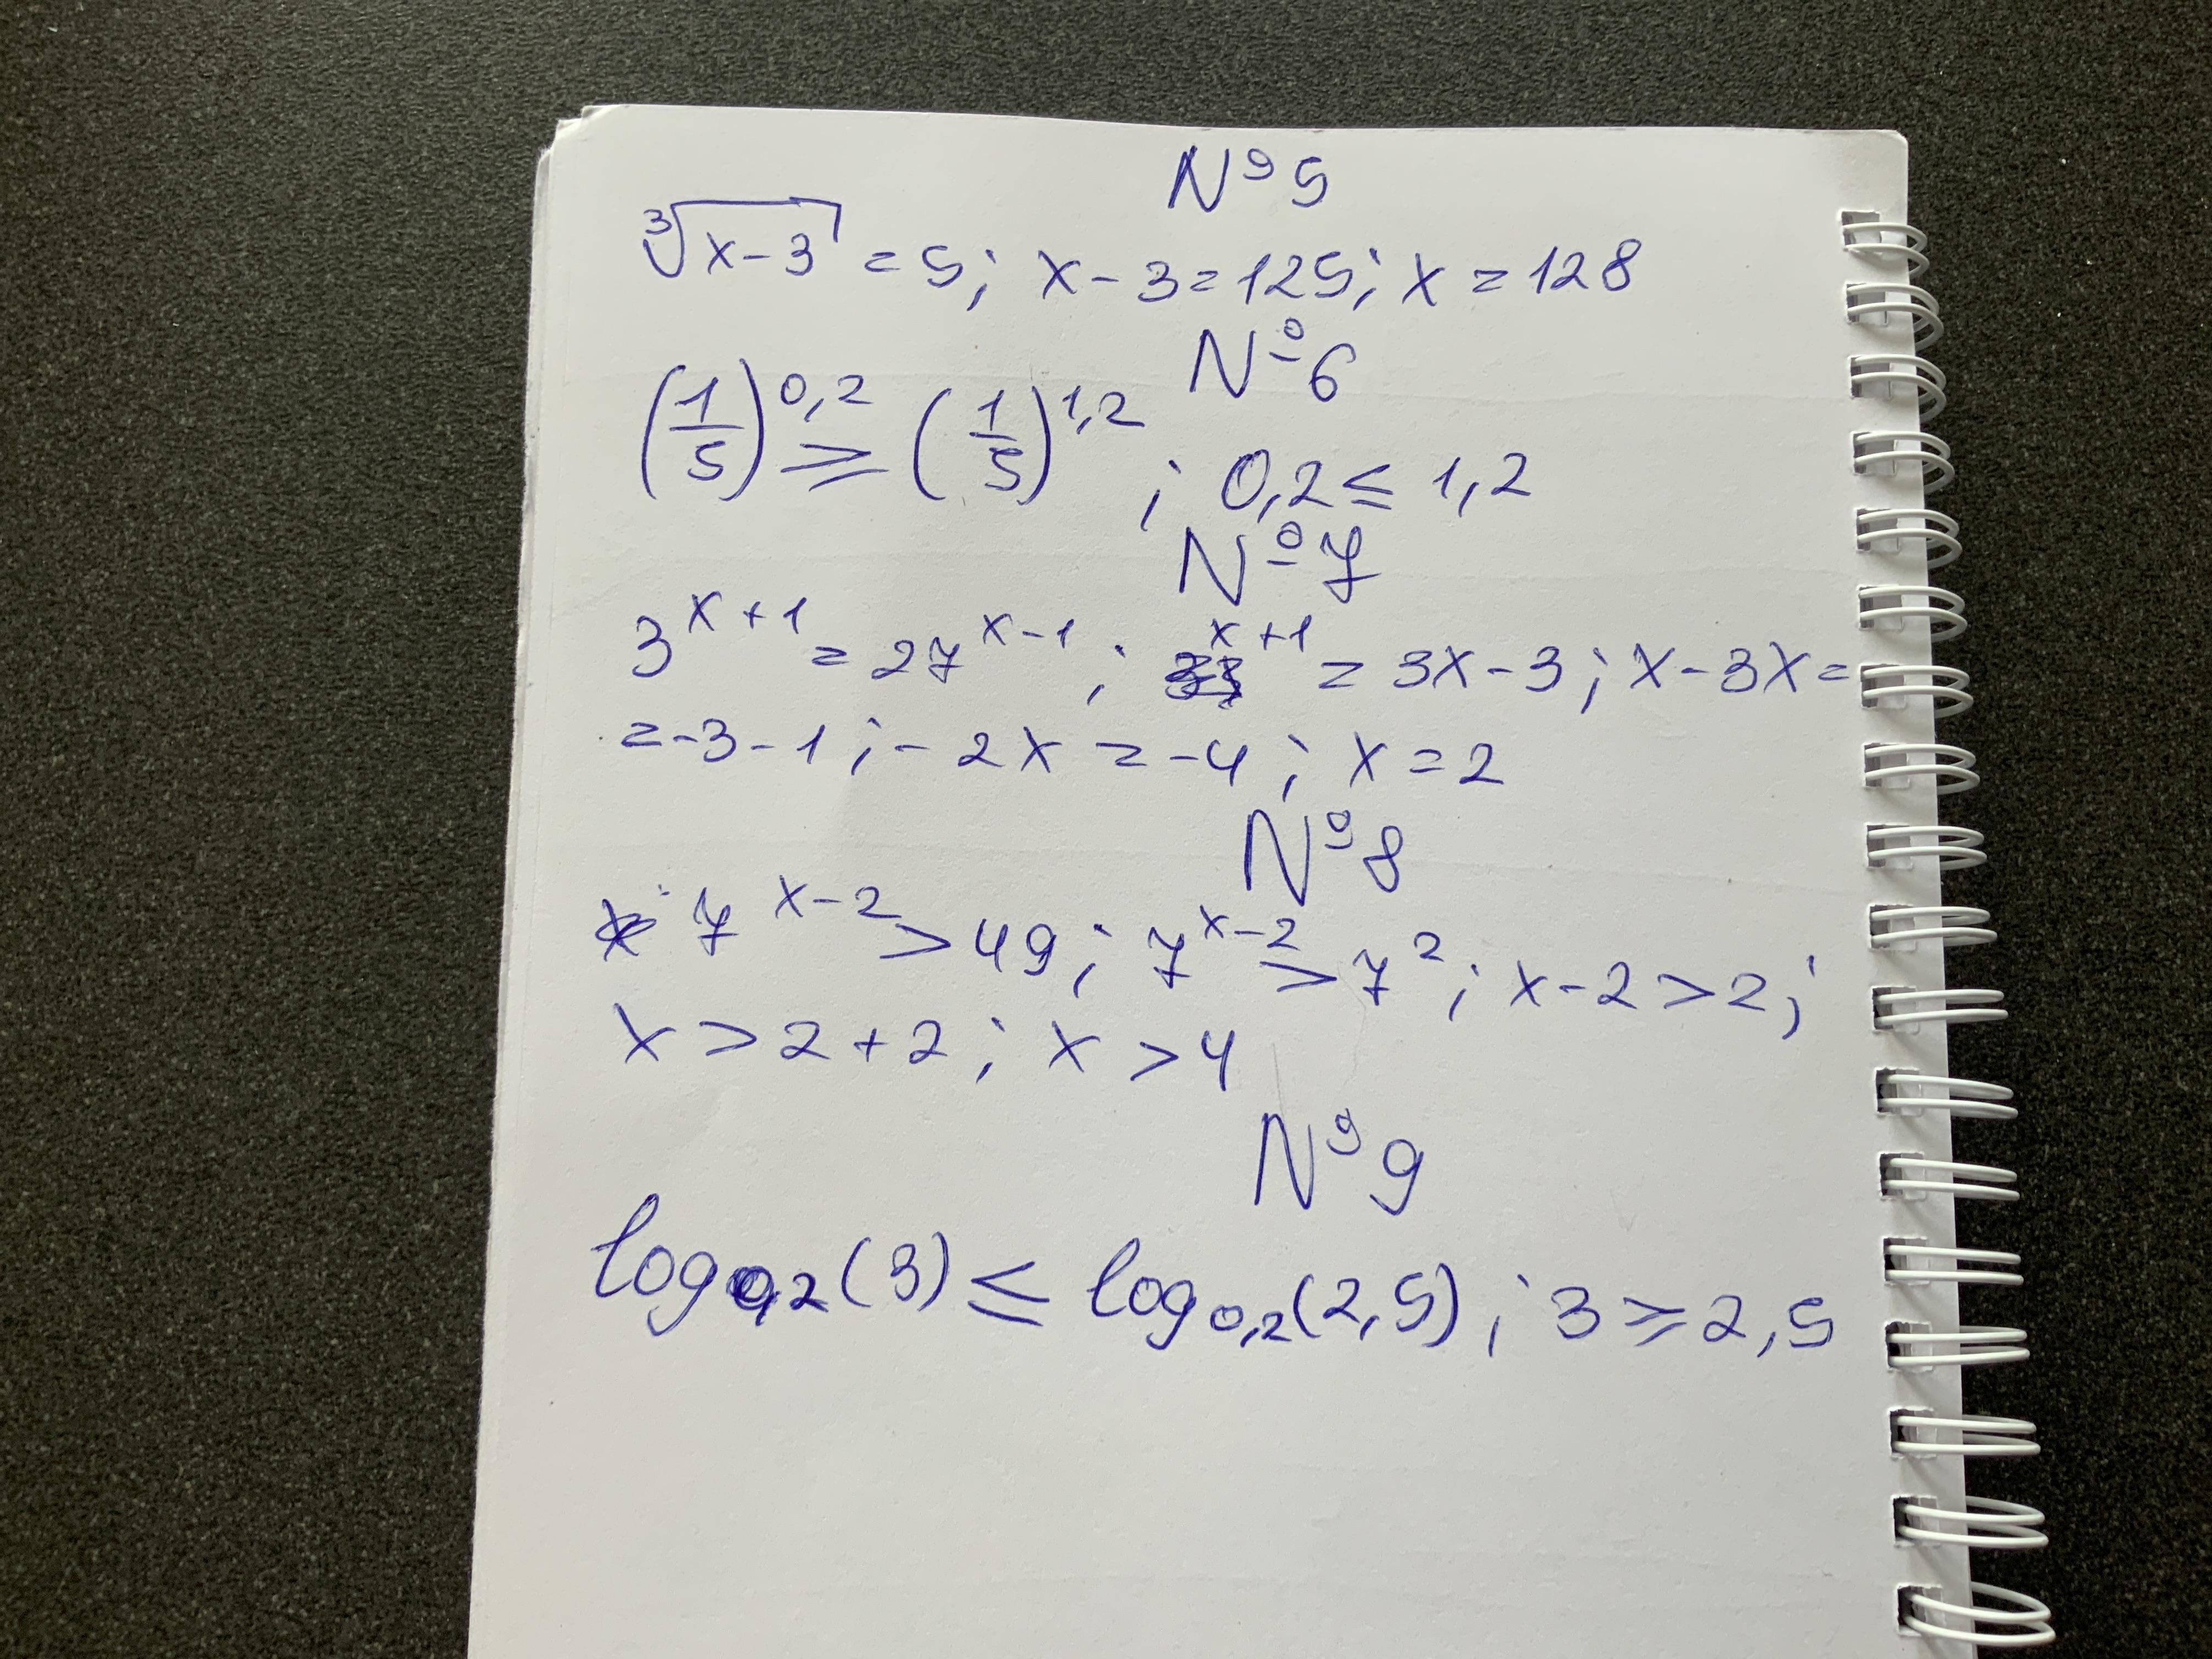 №5
∛(x-3) = 5; x-3=125; x = 128
№6
(1/5)^0,2 ≥ (1/5)^1,2; 0,2 ≤ 1,2
№7
3^(x+1) = 27^(x-1); x+1 = 3x-3; x-3x=
=-3-1; -2x = -4; x = 2
№8
7^(x-2) > 49; 7^(x-2) > 7^2; x-2>2;
x > 2+2; x > 4
№9
log_0,2(3) ≤ log_0,2(2,5); 3 ≥ 2,5